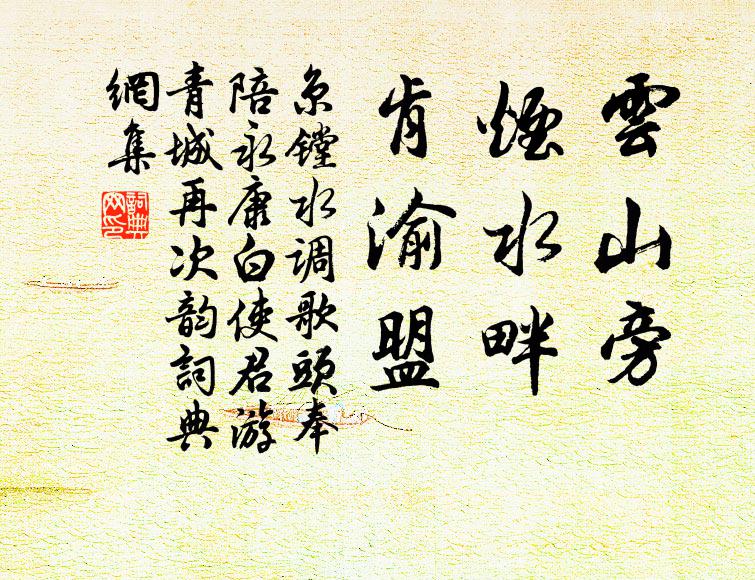 雲山旁
煙水畔
肯渝盟
京鏜水调歌頭奉
陪永康白使君游
青城再次韵詞典
網集
詞典
网印